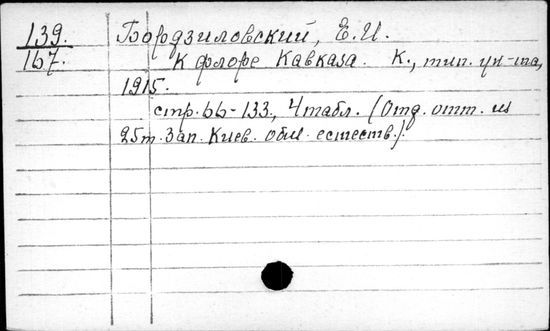 139. Бордзиловский, Е.И.
167. К флоре Кавказа. К., тип. ун-та,
1915.
стр. 66-133., 4 табл. (Отд. отт. из
25 т. Зап. Киев. общ. естеств.).